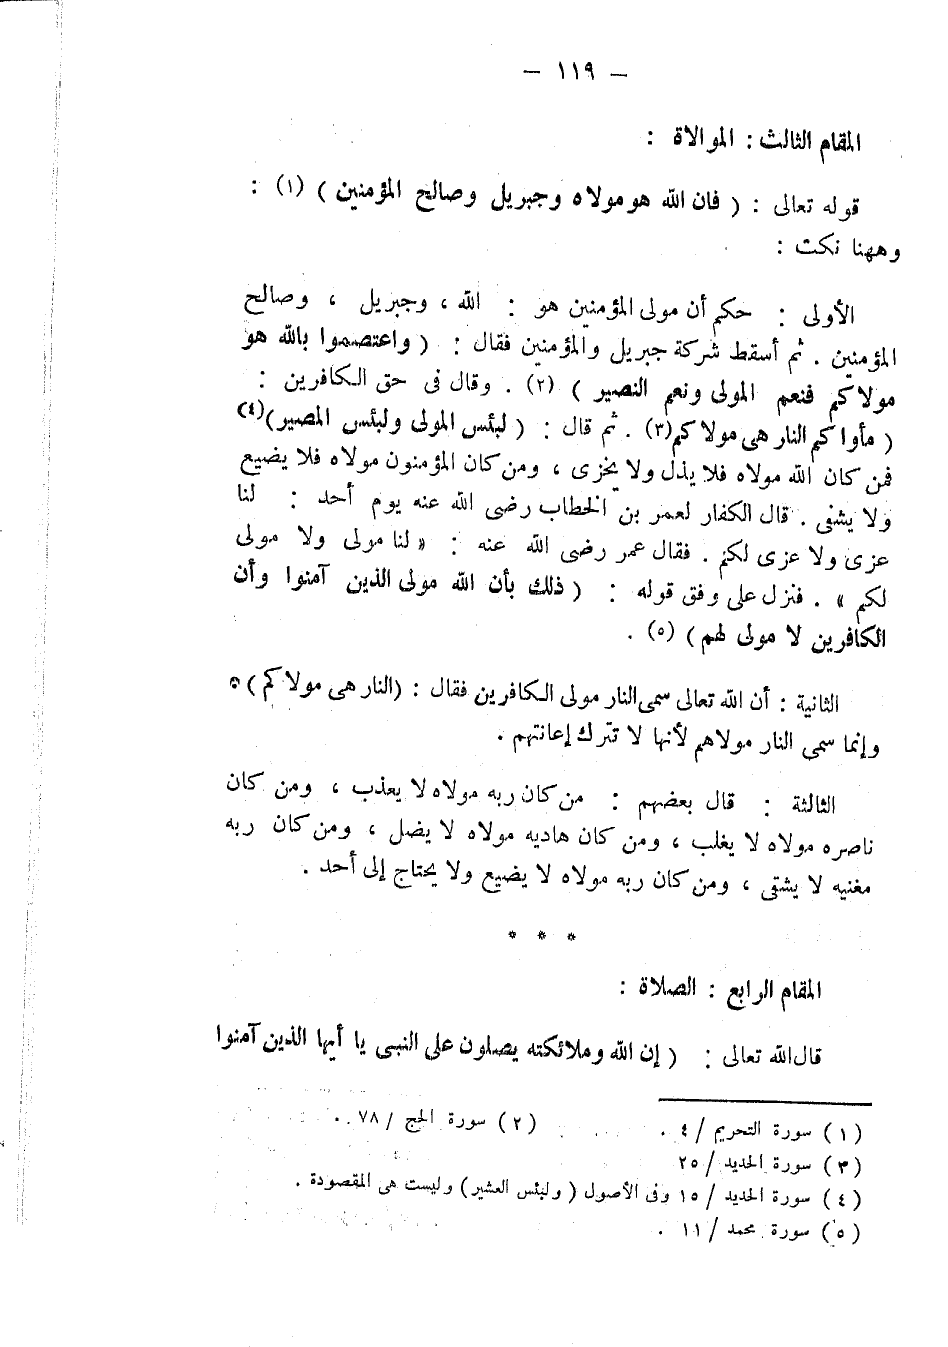 — ١١٩ —
المقام الثالث : الموالاة :
قوله تعالى : ( فان الله هو مولاه وجبريل وصالح المؤمنين ) (١) :
وههنا نكت :
الأولى : حكم أن مولى المؤمنين هو : الله ، وجبريل ، وصالح
المؤمنين . ثم أسقط شركة جبريل والمؤمنين فقال : ( واعتصموا بالله هو
مولاكم فنعم المولى ونعم النصير ) (٢) . وقال فى حق الكافرين :
( مأواكم النار هى مولاكم(٣) . ثم قال : ( لبئس المولى ولبئس المصير)(٤)
فمن كان الله مولاه فلا يذل ولا يخزى ، ومن كان المؤمنون مولاه فلا يضيع
ولا يشقى . قال الكفار لعمر بن الخطاب رضى الله عنه يوم أحد : لنا
عزى ولا عزى لكم . فقال عمر رضى الله عنه : « لنا مولى ولا مولى
لكم » . فنزل على وفق قوله : ( ذلك بأن الله مولى الذين آمنوا وأن
الكافرين لا مولى لهم ) (٥) .
الثانية : أن الله تعالى سمى النار مولى الكافرين فقال : (النار هى مولاكم )*
وإنما سمى النار مولاهم لأنها لا تترك إعانتهم .
الثالثة : قال بعضهم : من كان ربه مولاه لا يعذب ، ومن كان
ناصره مولاه لا يغلب ، ومن كان هاديه مولاه لا يضل ، ومن كان ربه
مغنيه لا يشقى ، ومن كان ربه مولاه لا يضيع ولا يحتاج إلى أحد .
* * *
المقام الرابع : الصلاة :
قال الله تعالى : ( إن الله وملائكته يصلون على النبى يا أيها الذين آمنوا
(١) سورة التحريم / ٤ . (٢) سورة الحج / ٧٨ .
(٣) سورة الحديد / ٢٥
(٤) سورة الحديد / ١٥ وفى الأصول ( ولبئس العشير) وليست هى المقصودة .
(٥) سورة محمد / ١١ .